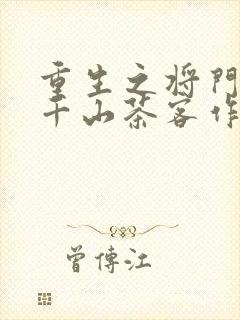 重生之将門
千山茶客作
曾傳江